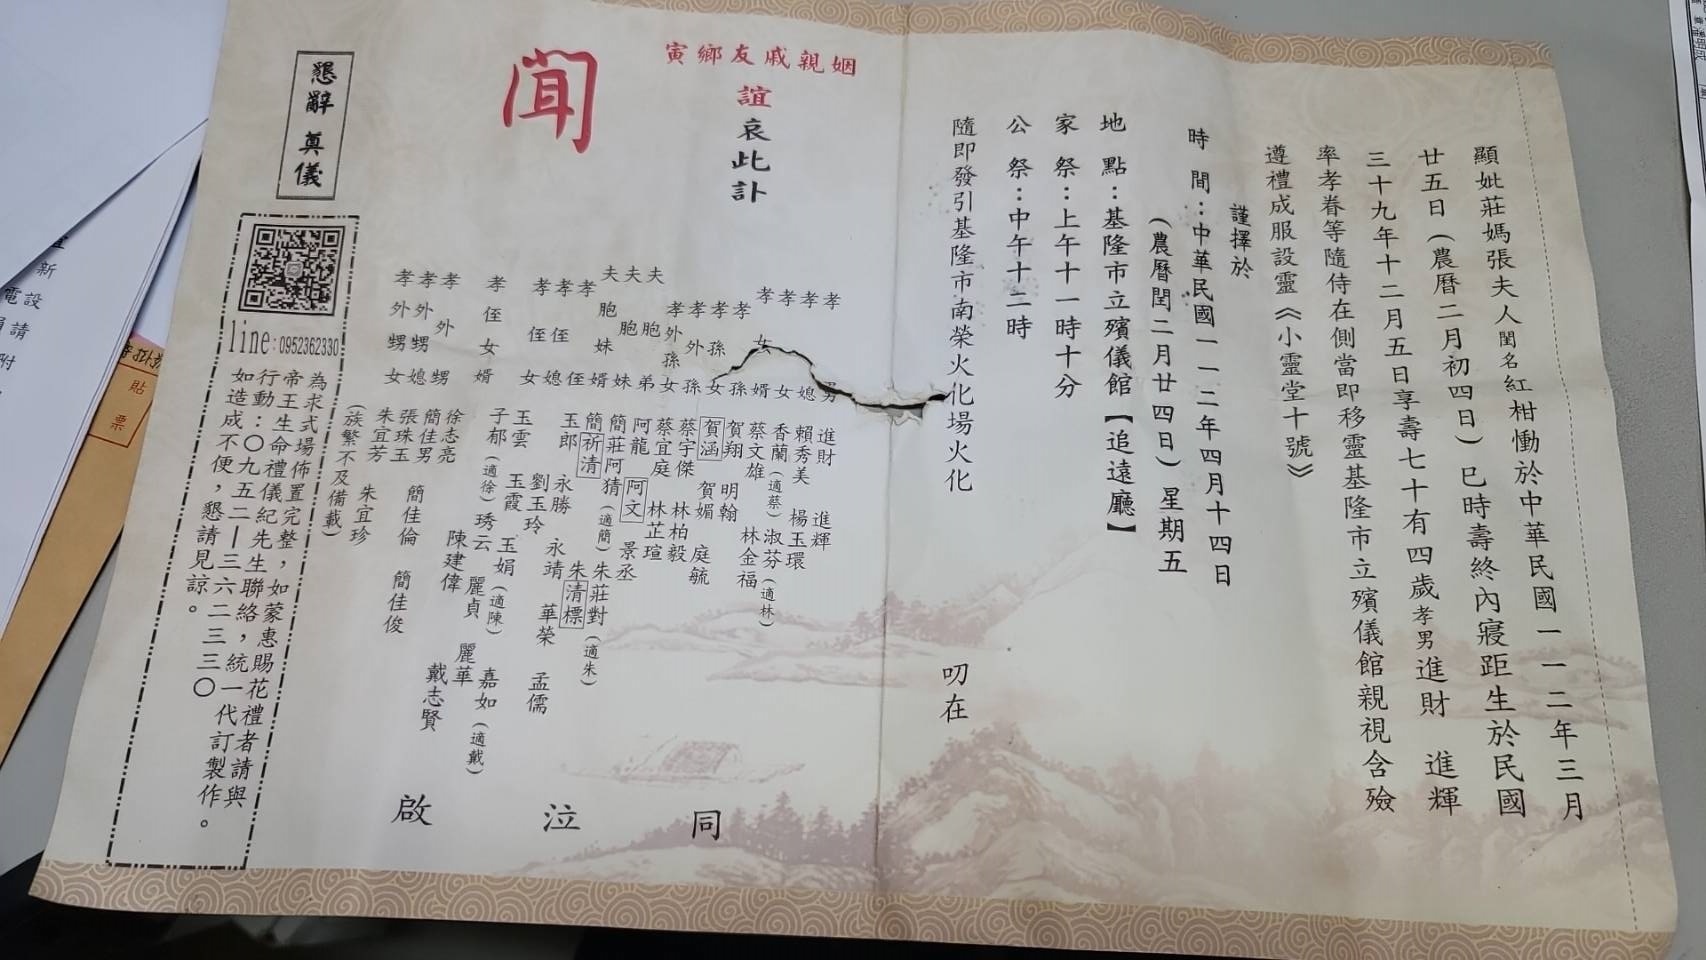 顯妣莊媽張夫人閨名紅柑慟於中華民國一一二年三月
廿五日(農曆二月初四日)巳時壽終內寢距生於民國
三十九年十二月五日享壽七十有四歲孝男進財 進輝
率孝眷等隨侍在側當即移靈基隆市立殯儀館親視含殮
遵禮成服設靈《小靈堂十號》
謹擇於
時間:中華民國一一二年四月十四日
(農曆閏二月廿四日)星期五
地點:基隆市立殯儀館【追遠廳】
家祭:上午十一時十分
公祭:中午十二時
隨即發引基隆市南榮火化場火化
叨在
姻親戚友鄉寅
誼哀此訃
聞
孝男 進財 進輝
孝媳 賴秀美 楊玉環
孝女 香蘭(適蔡) 淑芬(適林)
孝女婿 蔡文雄 林金福
孝孫 賀翔 明翰
孝孫女 賀涵 賀媚 庭毓
孝外孫 蔡宇傑 林柏毅
孝外孫女 蔡宜庭 林芷瑄
夫胞弟 阿龍 阿文 景丞
夫胞妹 簡莊阿猜(適簡) 朱莊對(適朱)
夫胞妹婿 簡祈清 朱清標
孝侄 玉郎 永勝 永靖 華榮 孟儒
孝侄媳 劉玉玲
孝侄女 玉雲 玉霞 玉娟(適陳) 嘉如(適戴)
子郁(適徐) 琇云 麗貞 麗華
孝侄女婿 徐志亮 陳建偉 戴志賢
孝外甥 簡佳男 簡佳倫 簡佳俊
孝外甥媳 張珠玉
孝外甥女 朱宜芳 朱宜珍
(族繁不及備載)
同泣啟
懇辭奠儀
line:0952362330
為求式場佈置完整,如蒙惠賜花禮者請與
帝王生命禮儀紀先生聯絡,統一代訂製作。
行動:〇九五二—三六二三三〇
如造成不便,懇請見諒。
貼票